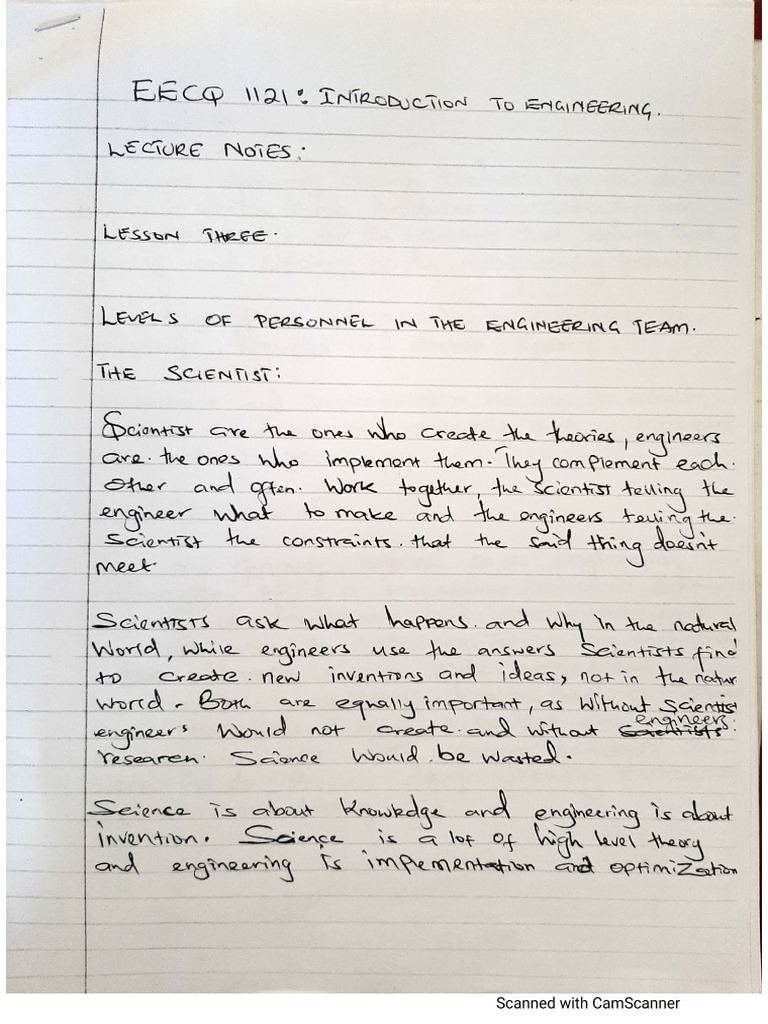 EECQ 1121: INTRODUCTION TO ENGINEERING.
LECTURE NOTES:
LESSON THREE.
LEVELS OF PERSONNEL IN THE ENGINEERING TEAM.
THE SCIENTIST:
Scientist are the ones who create the theories, engineers
are. the ones who implement them. They complement each.
other and often. Work together, the scientist telling the
engineer what to make and the engineers telling the.
Scientist the constraints. that the said thing doesn't
meet.
Scientists ask what happens. and why in the natural
World, while engineers use the answers Scientists find
to create. new inventions and ideas, not in the natur
world. Both are equally important, as without Scientist
engineers would not create. and without engineers.
research. Science would be wasted.
Science is about knowledge and engineering is about
invention. Science is a lot of high level theory
and engineering is implementation and optimization
Scanned with CamScanner